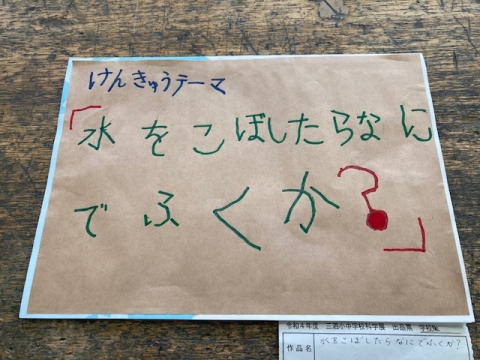 けんきゅうテーマ
「水をこぼしたらなに
でふくか?」
令和4年度 三沼小中学校科学展 出品票 学校編
作品名 水をこぼしたらなにでふくか?